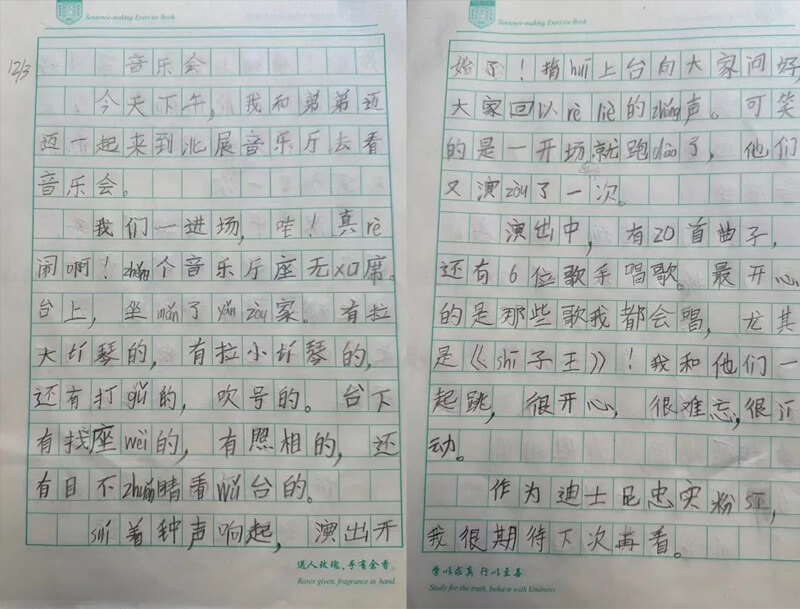 Sentence-making Exercise Book
12/3
音乐会
今天下午，我和弟弟迈
迈一起来到北展音乐厅去看
音乐会。
我们一进场，哇！真rè
闹啊！zhěng个音乐厅座无xū席。
台上，坐mǎn了yǎn zòu家。有拉
大tí琴的，有拉小tí琴的，
还有打gǔ的，吹号的。台下
有找座wèi的，有照相的，还
有目不zhuǎn睛看wǔ台的。
suí着钟声响起，演出开
送人玫瑰、手有余香。
Roses given, fragrance in hand.
Sentence-making Exercise Book
始了！指huī上台向大家问好
大家回以rè liè的zhǎng声。可笑
的是一开场就跑diào了，他们
又演zòu了一次。
演出中，有20首曲子，
还有6位歌手唱歌。最开心
的是那些歌我都会唱，尤其
是《shī子王》！我和他们一
起跳，很开心，很难忘，很
动。
作为迪士尼忠实粉丝，
我很期待下次再看。
学以求真 行以至善
Study for the truth, behave with kindness.